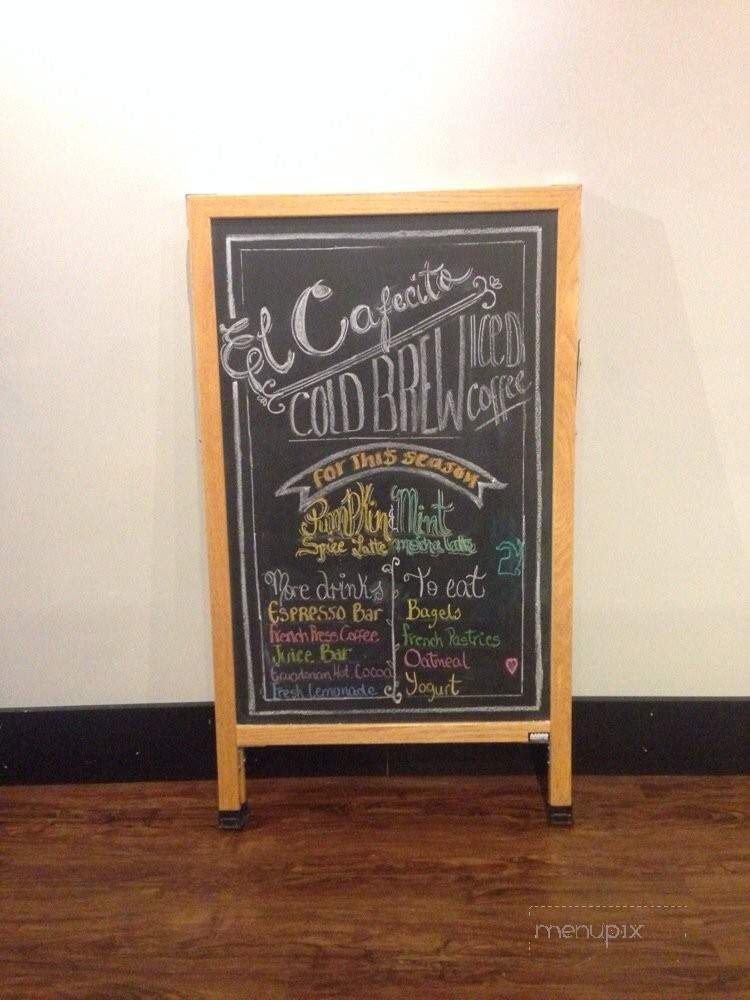 El Cafecito
COLD BREW ICED
coffee
for this season
Pumpkin & Mint
Spice Latte mocha latte
More drinks
Espresso Bar
French Press Coffee
Juice Bar
Ecuadorian Hot Cocoa
Fresh Lemonade
To eat
Bagels
French Pastries
Oatmeal
Yogurt
menupix